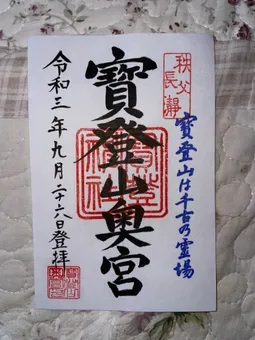 秩父
長瀞
寶登山は千古の霊場
寶登山奥宮
寶登山
神社
令和三年九月二十六日登拝